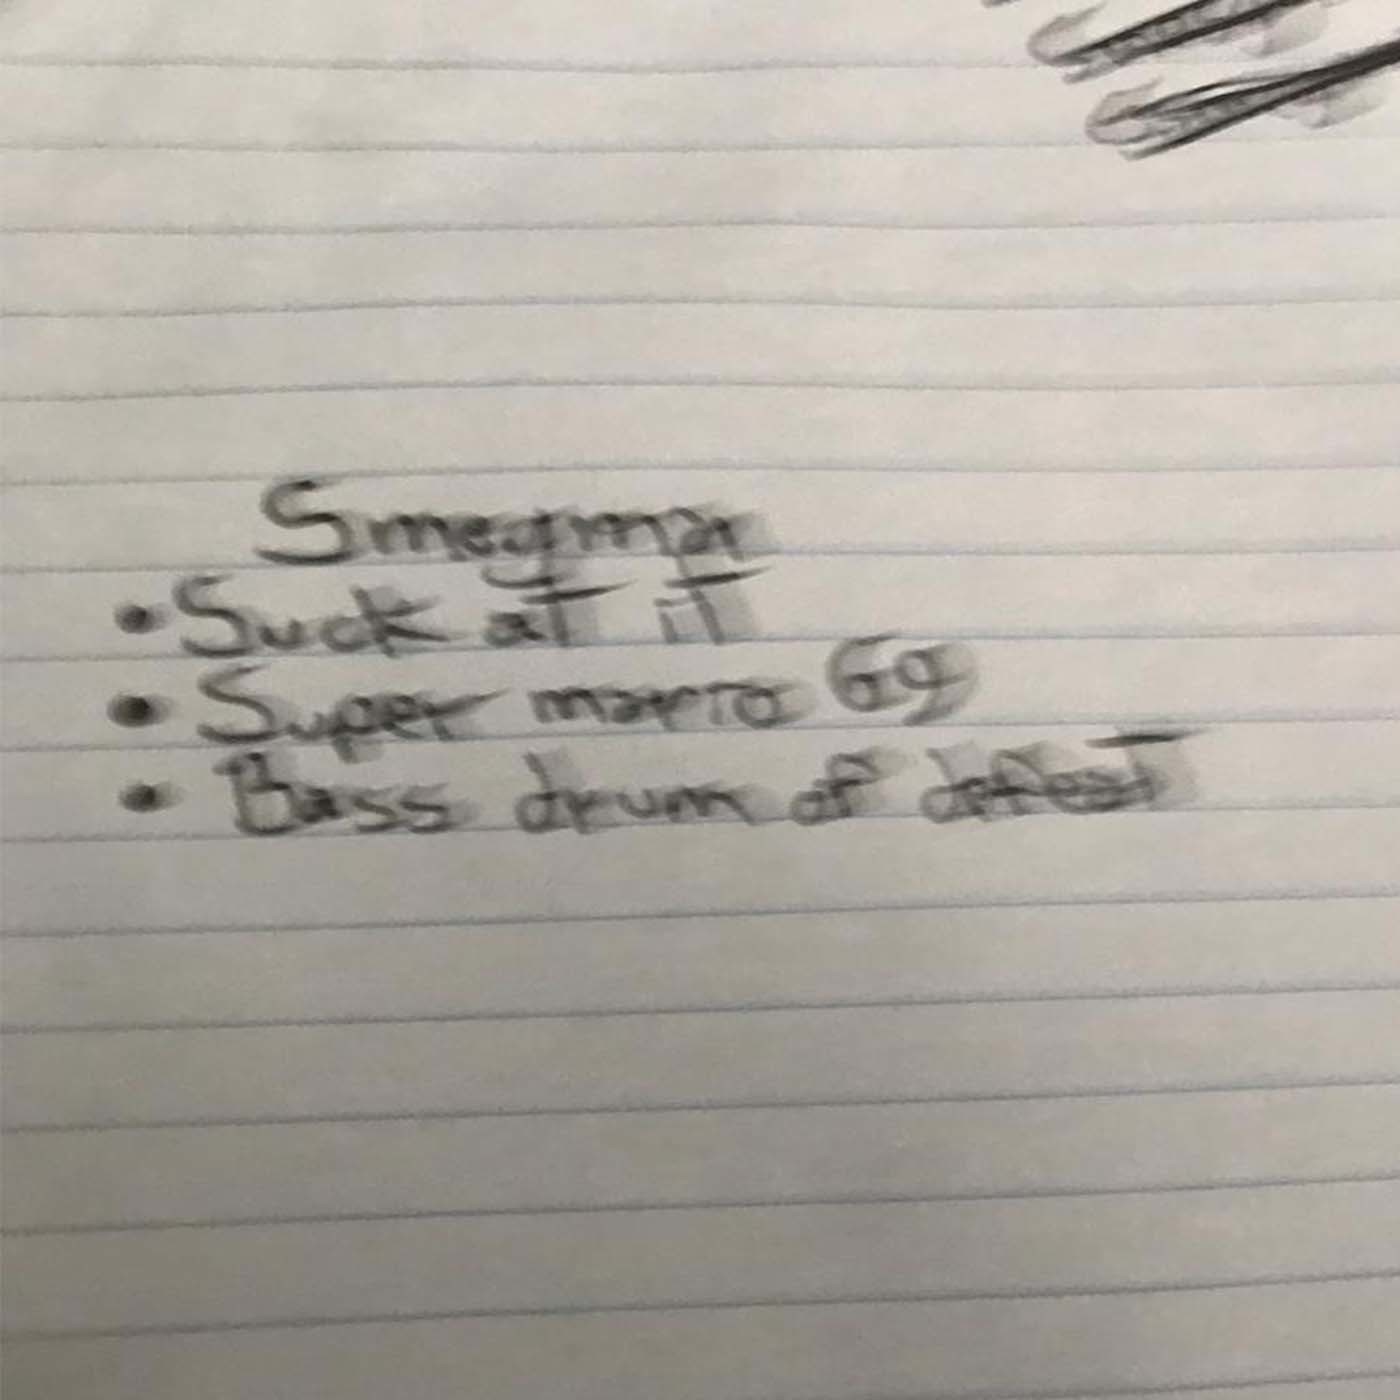 Smegma
• Suck at it
• Super mario 69
• Bass drum of defeat